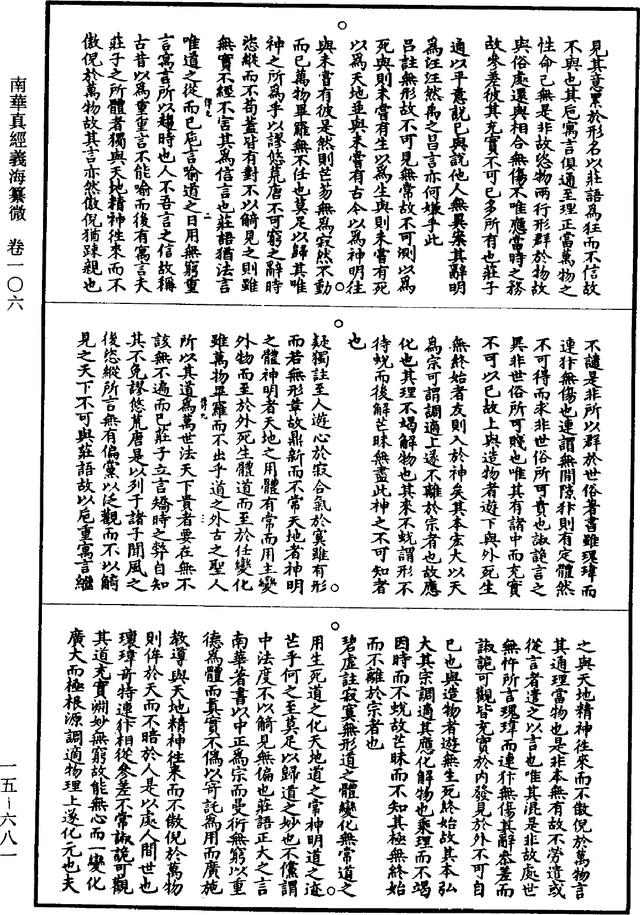 南華真經義海纂微 卷一〇六
一五—六八一
見其意累於形名以莊語為狂而不信故
不與也其巵寓言俱通至理正當萬物之
性命己無是非故恣物兩行形群於物故
與俗處還與相合無傷不唯應當時之務
故參差彼其充實不可已多所有也莊子
通以平意說己與說他人無異案其辭明
為汪汪然禹之昌言亦何嫌乎此
呂註無形故不可見無常故不可測以為
死與則未嘗有生以為生與則未嘗有死
以為天地並與未嘗有古今以為神明往
與未嘗有彼是然則芒芴無為寂然不動
而已萬物畢羅無不任也莫足以歸其唯
神之所為乎以謬悠荒唐不可窮之辭時
恣縱而不苟蓋時有對不以觭見之則雖
無實不經不害其為信言也莊語猶法言
唯道之從而已巵言喻道之日用無窮重
言寓言所以趨時也人不吾言之信故稱
古昔以為重重言不能喻而後有寓言夫
莊子之所體者獨與天地精神往來而不
傲倪於萬物故其言亦然傲倪猶疎親也
不譴是非所以群於世俗著書雖瓌瑋而
連犿無傷也連謂無間隙犿則有定體然
不可得而求非世俗所可貴也諔詭言之
異非世俗所可賤也唯其有諸中而充實
不可以已故上與造物者遊下與外死生
無終始者友則入於神矣其本宏大以天
為宗可謂調適上遂不離於宗者也故應
化也其理不竭解物也其來不蛻謂形不
待蛻而後解芒昧無盡此神之不可知者
也
疑獨註至人遊心於寂合氣於寞雖有形
而若無形革故鼎新而不常天地者神明
之體神明者天地之用體有常而用主變
外物而至於外死生體道而至於任變化
雖萬物畢羅而不出乎道之外古之聖人
所以其道為萬世法天下貴者要在無不
該無不遍而已莊子立言矯時之弊自知
其不免謬悠荒唐是以列于諸子聞風之
後恣縱所言無有偏黨以泛觀而不以觭
見之天下不可與莊語故以巵重寓言繼
之與天地精神往來而不傲倪於萬物言
其通理當物也是非本無有故不勞遣或
從言者遣之以言也唯其混是非故處世
無忤所言瓌瑋而連犿無傷其辭參差而
諔詭可觀皆充實於內發見於外不可自
已也與造物者遊無生死終始故其本弘
大其宗調適其應化解物也乘理而不竭
因時而不蛻故芒昧而不知其極無終始
而不離於宗者也
碧虛註寂寞無形道之體變化無常道之
用生死道之化天地道之常神明道之迹
芒乎何之至莫足以歸道之妙也不儻謂
中法度不以觭見無偏也莊語正大之言
南華著書以中正為宗而曼衍無窮以重
德為體而真實不偽以寄託為用而廣施
教導與天地精神往來而不傲倪於萬物
則侔於天而不暗於人是以處人間世也
瓌瑋奇特連犿相從參差不常諔詭可觀
其道充實淵妙無窮故能無心而一變化
廣大而極根源調適物理上遂化元也夫